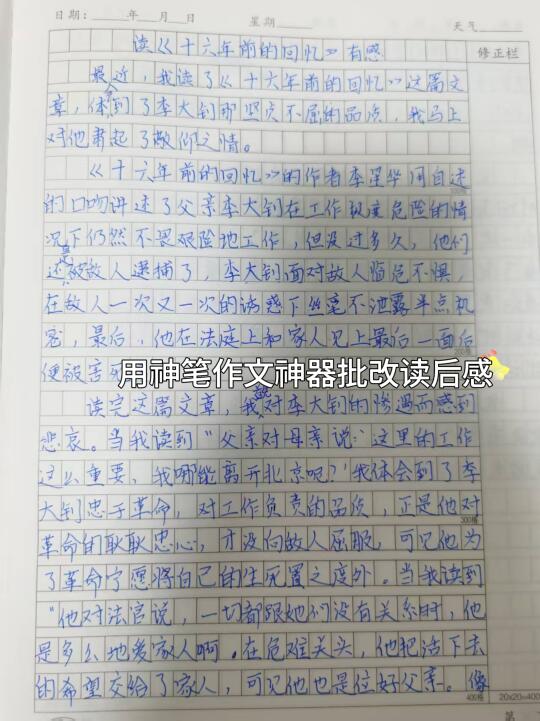 日期： 年 月 日 星期 天气
修正栏
读《十六年前的回忆》有感
最近，我读了《十六年前的回忆》这篇文
章，体到了李大钊那坚贞不屈的品质，我马上
对他肃起了敬仰之情。
《十六年前的回忆》的作者李星华用自述
的口吻讲述了父亲李大钊在工作极度危险的情
况下仍然不畏艰险地工作，但没过多久，他们
还是被敌人逮捕了，李大钊面对敌人临危不惧，
在敌人一次又一次的诱惑下丝毫不泄露半点机
密，最后，他在法庭上和家人见上最后一面后
便被害
用神笔作文神器批改读后感
读完这篇文章，我对李大钊的惨遇而感到
悲哀。当我读到"父亲对母亲说：这里的工作
这么重要，我哪能离开北京呢？'我体会到了李
大钊忠于革命，对工作负责的品质，正是他对
300格
革命的耿耿忠心，才没向敌人屈服，可见他为
了革命宁愿将自己的生死置之度外。当我读到
"他对法官说，一切都跟她们没有关系时，他
是多么地爱家人啊。在危难关头，他把活下去
的希望交给了家人，可见他也是位好父亲。像
400格
20×20=400
第